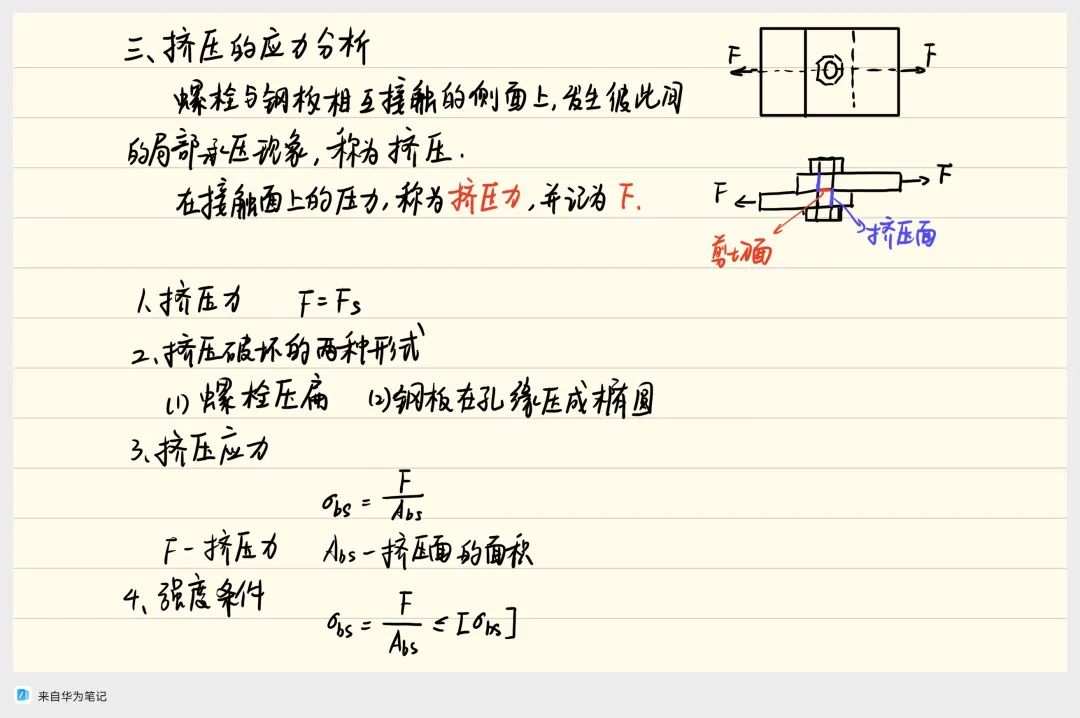 三、挤压的应力分析
螺栓与钢板相互接触的侧面上,发生彼此间
的局部承压现象,称为挤压.
在接触面上的压力,称为挤压力,并记为 F.
F F
F F
剪切面 挤压面
1、挤压力 F=Fs
2、挤压破坏的两种形式
(1) 螺栓压扁 (2)钢板在孔缘压成椭圆
3、挤压应力
σbs = F/Abs
F-挤压力 Abs-挤压面的面积
4、强度条件
σbs = F/Abs ≤ [σbs]
来自华为笔记